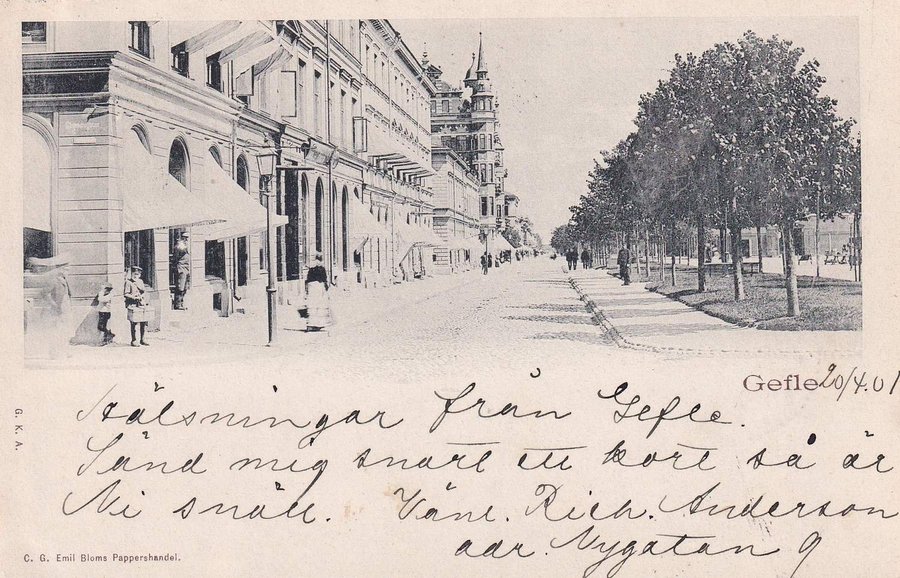 Gefle 20/4.01
Hälsningar från Gefle.
Sänd mig snart ett kort så är
Ni snäll. Vänl. Rich. Anderson
adr. Nygatan 9
G. K. A.
C. G. Emil Bloms Pappershandel.